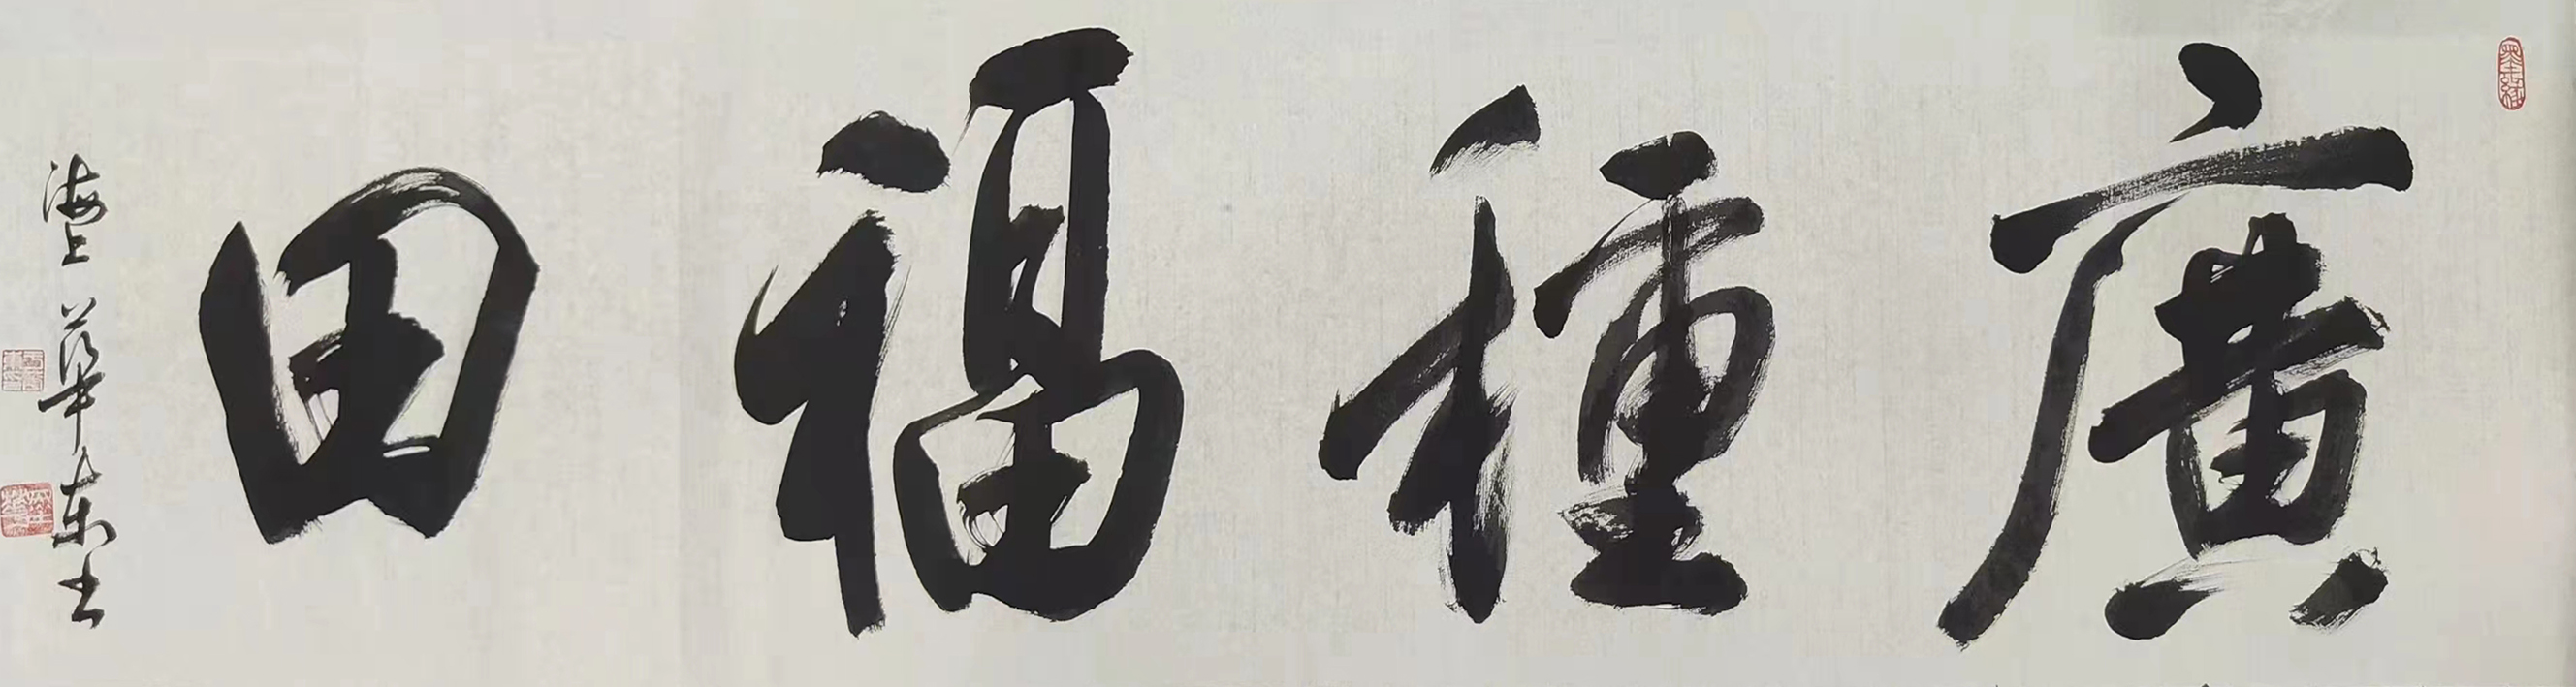 廣種福田
海上華東书